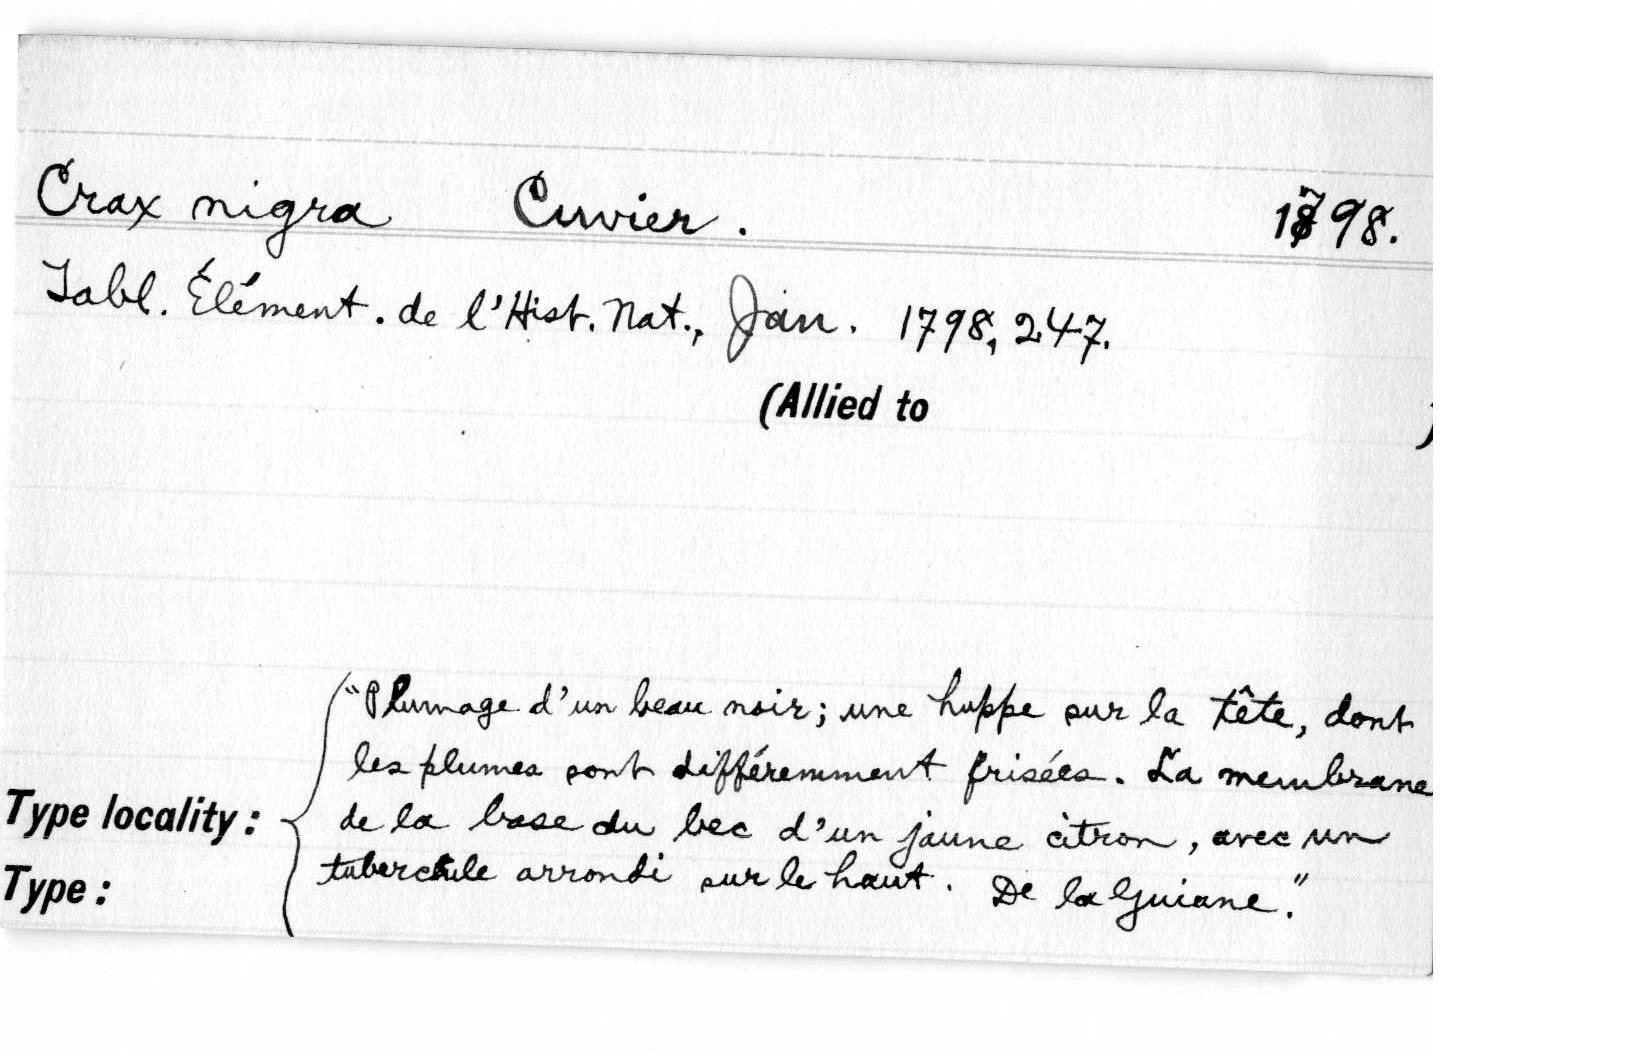 Crax nigra Cuvier. 1798.
Tabl. Élément. de l'Hist. Nat., Jan. 1798, 247.
(Allied to )
"Plumage d'un beau noir; une huppe sur la tête, dont
les plumes sont différemment frisées. La membrane
Type locality: de la base du bec d'un jaune citron, avec un
Type: tubercule arrondi sur le haut. De la Guiane."